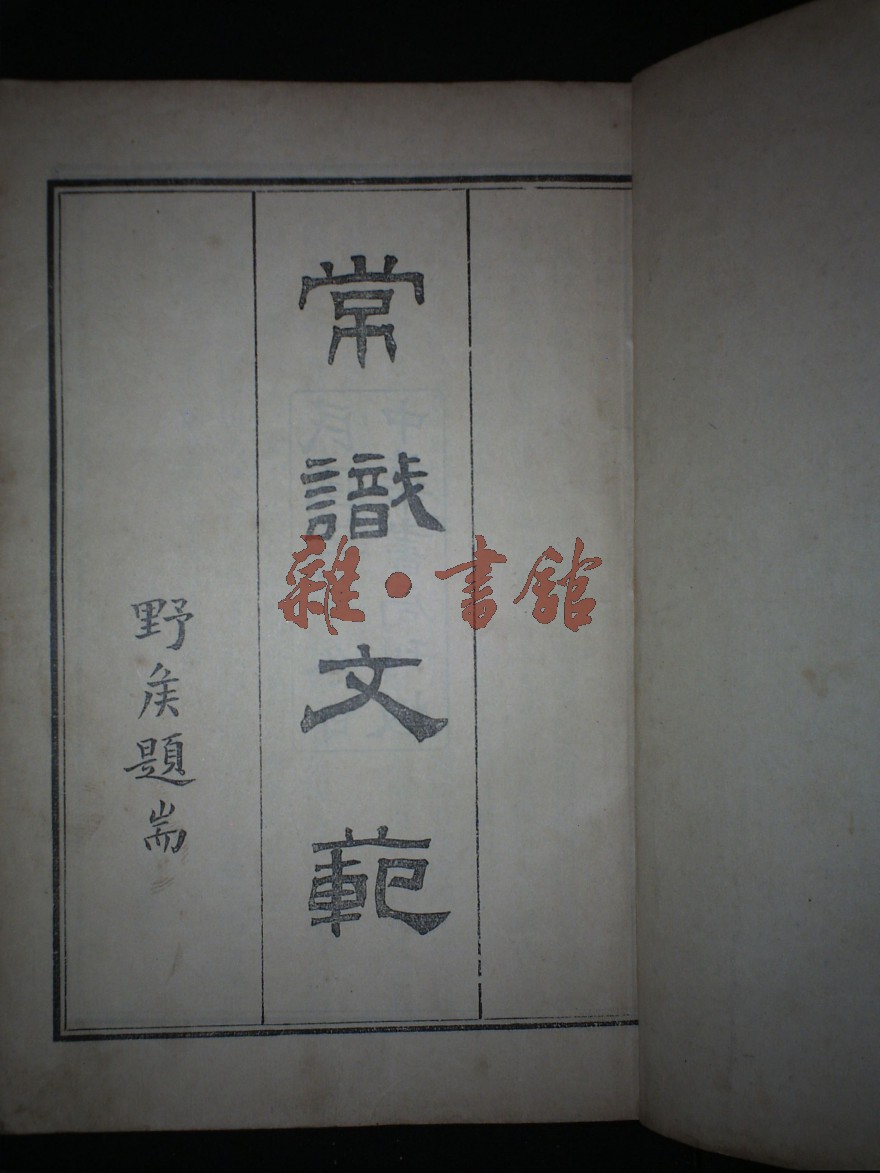 常識文範
野矦題耑
雜·書館